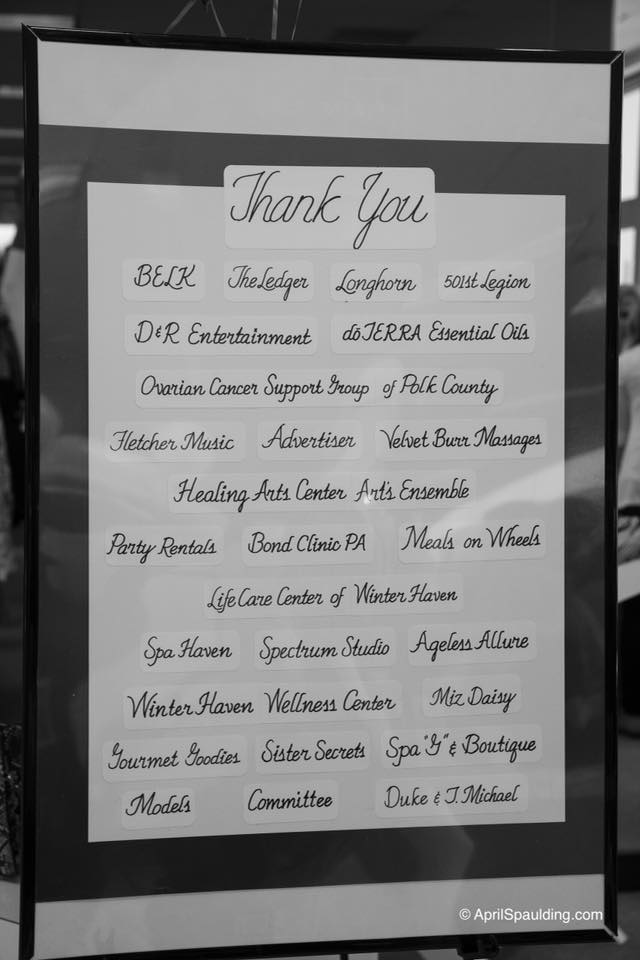 Thank You
BELK The Ledger Longhorn 501st Legion
D&R Entertainment dōTERRA Essential Oils
Ovarian Cancer Support Group of Polk County
Fletcher Music Advertiser Velvet Burr Massages
Healing Arts Center Art's Ensemble
Party Rentals Bond Clinic PA Meals on Wheels
Life Care Center of Winter Haven
Spa Haven Spectrum Studio Ageless Allure
Winter Haven Wellness Center Miz Daisy
Gourmet Goodies Sister Secrets Spa "G" & Boutique
Models Committee Duke & J. Michael
© AprilSpaulding.com